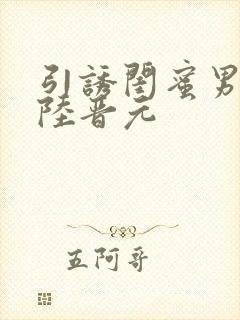 引誘閨蜜男
陸晋元
五阿哥